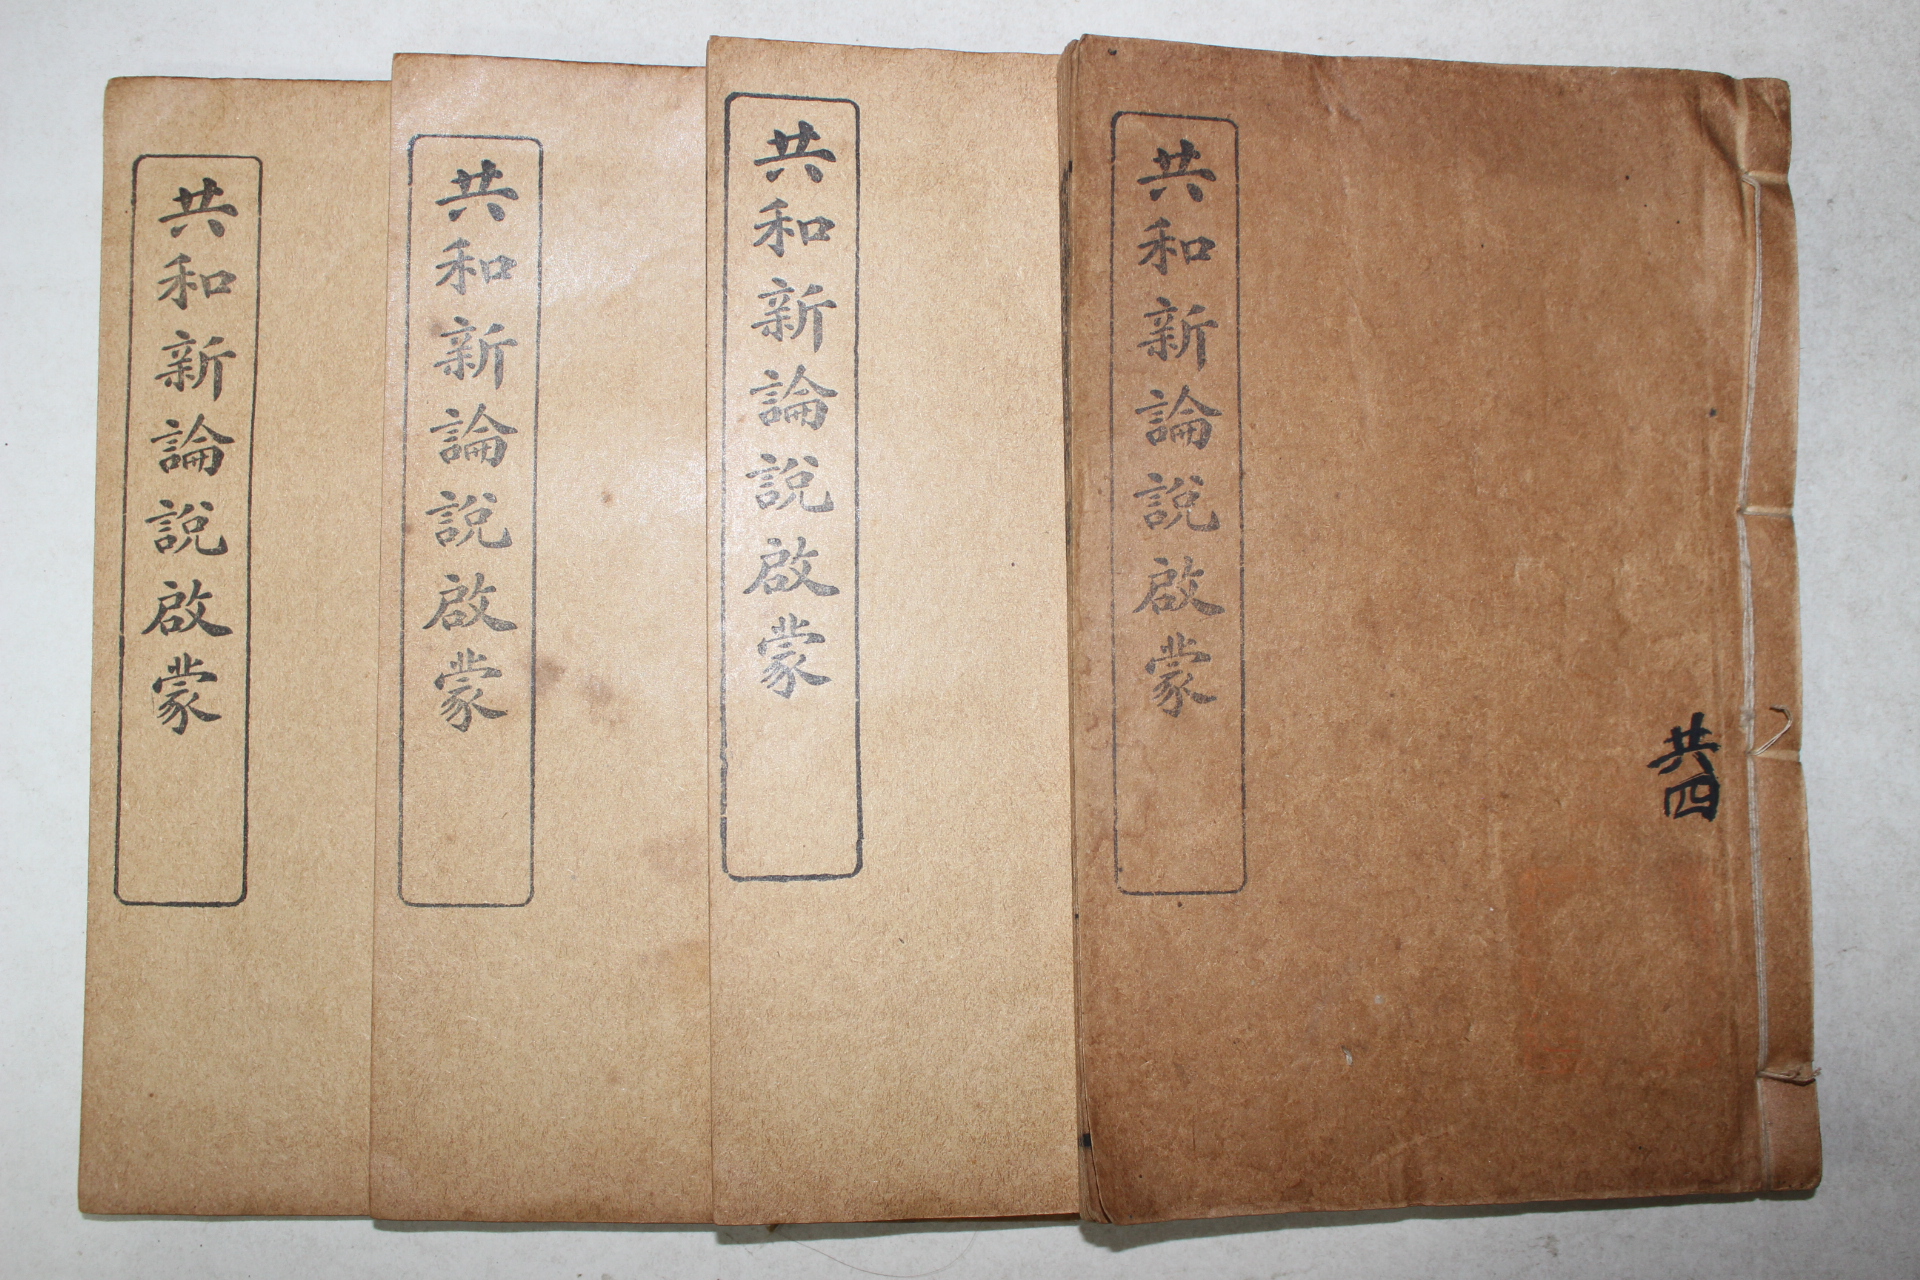 共和新論說啟蒙
共和新論說啟蒙
共和新論說啟蒙
共和新論說啟蒙
共四